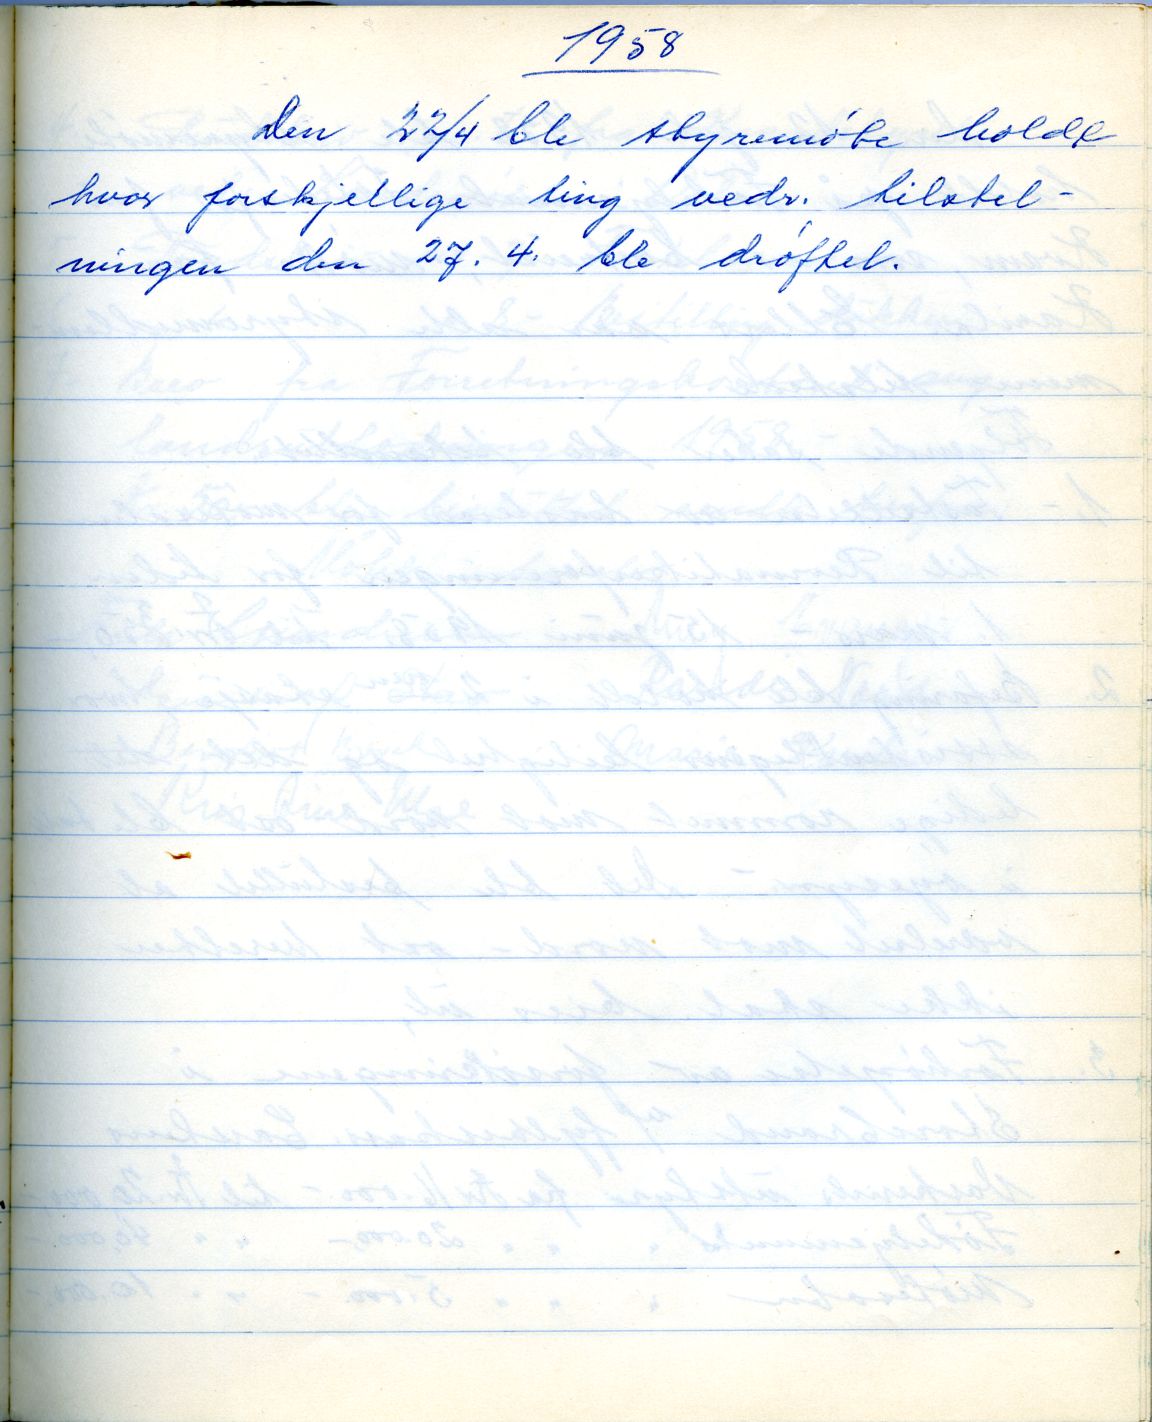 1958
Den 22/4 ble styremöte holdt
hvor forskjellige ting vedr. tilstel-
ningen den 27. 4. ble dröftet.